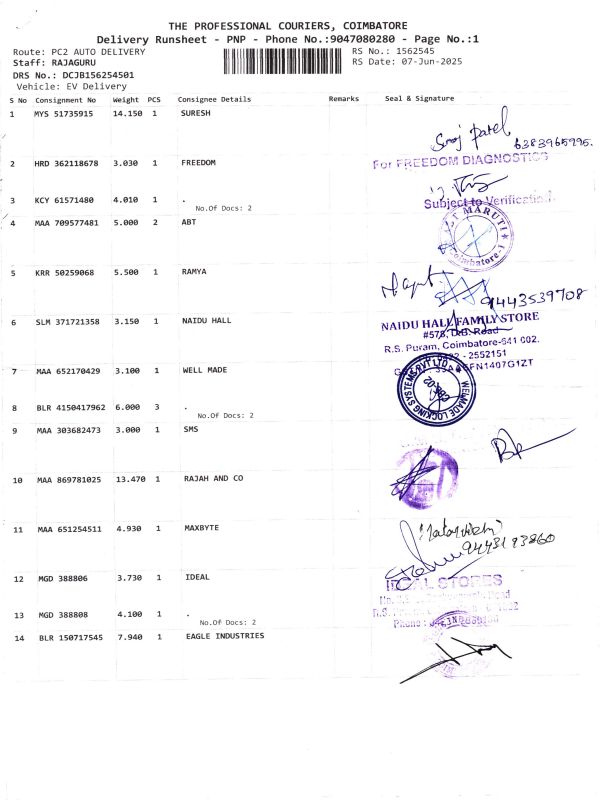 THE PROFESSIONAL COURIERS, COIMBATORE
Delivery Runsheet - PNP - Phone No.:9047080280 - Page No.:1
Route: PC2 AUTO DELIVERY RS No.: 1562545
Staff: RAJAGURU RS Date: 07-Jun-2025
DRS No.: DCJB156254501
Vehicle: EV Delivery
S No Consignment No Weight PCS Consignee Details Remarks Seal & Signature
1 MYS 51735915 14.150 1 SURESH
6383965995.
2 HRD 362118678 3.030 1 FREEDOM
For FREEDOM DIAGNOSTICS
3 KCY 61571480 4.010 1 .
No.Of Docs: 2
Subject to Verification
4 MAA 709577481 5.000 2 ABT
MARUTI
Coimbatore-1
5 KRR 50259068 5.500 1 RAMYA
9443539708
6 SLM 371721358 3.150 1 NAIDU HALL
NAIDU HALL FAMILY STORE
#578, D.B. Road
R.S. Puram, Coimbatore-641 002.
2552151
7 MAA 652170429 3.100 1 WELL MADE
WEMADE LOCKING SYSTEMS PVT LTD
8 BLR 4150417962 6.000 3 .
No.Of Docs: 2
9 MAA 303682473 3.000 1 SMS
10 MAA 869781025 13.470 1 RAJAH AND CO
11 MAA 651254511 4.930 1 MAXBYTE
9443193860
12 MGD 388806 3.730 1 IDEAL
IDEAL STORES
13 MGD 388808 4.100 1 .
No.Of Docs: 2
Phone :
14 BLR 150717545 7.940 1 EAGLE INDUSTRIES